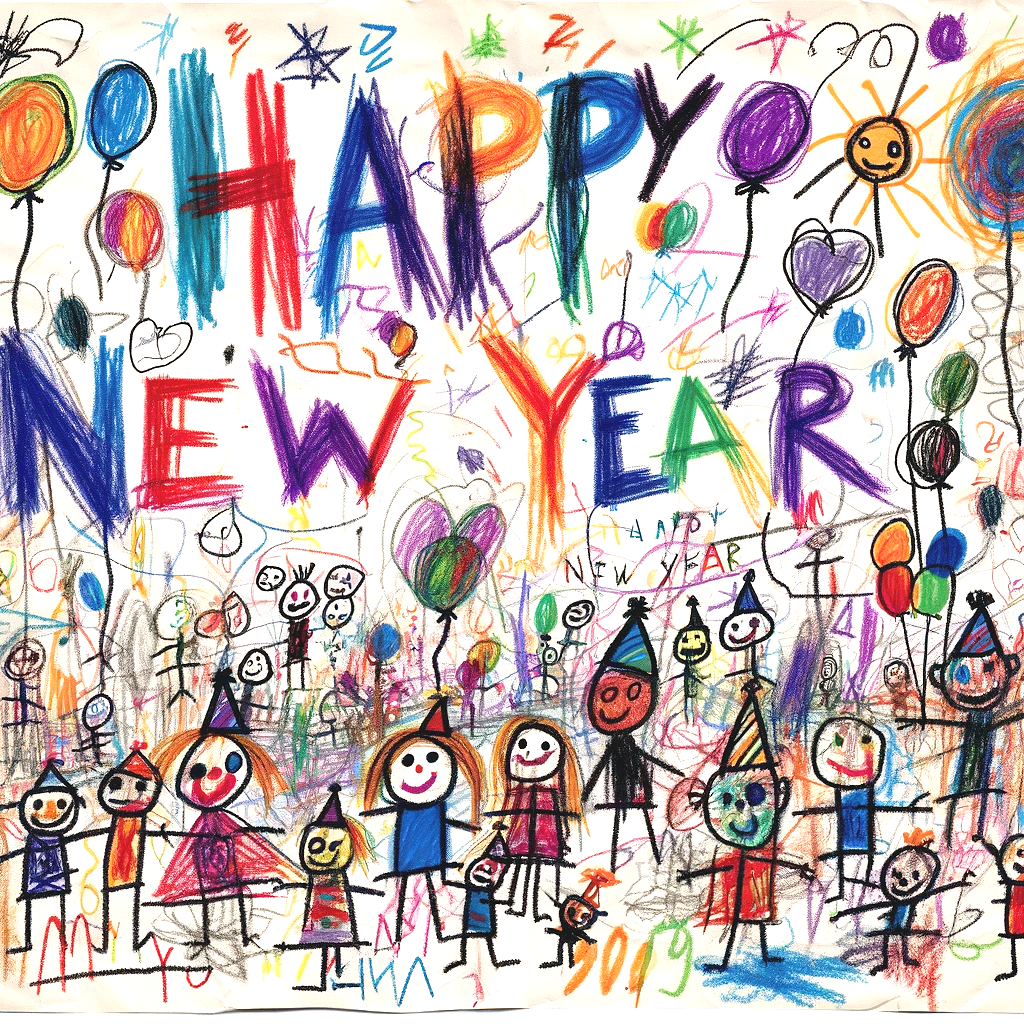 HAPPY
NEW YEAR
HAPPY
NEW YEAR